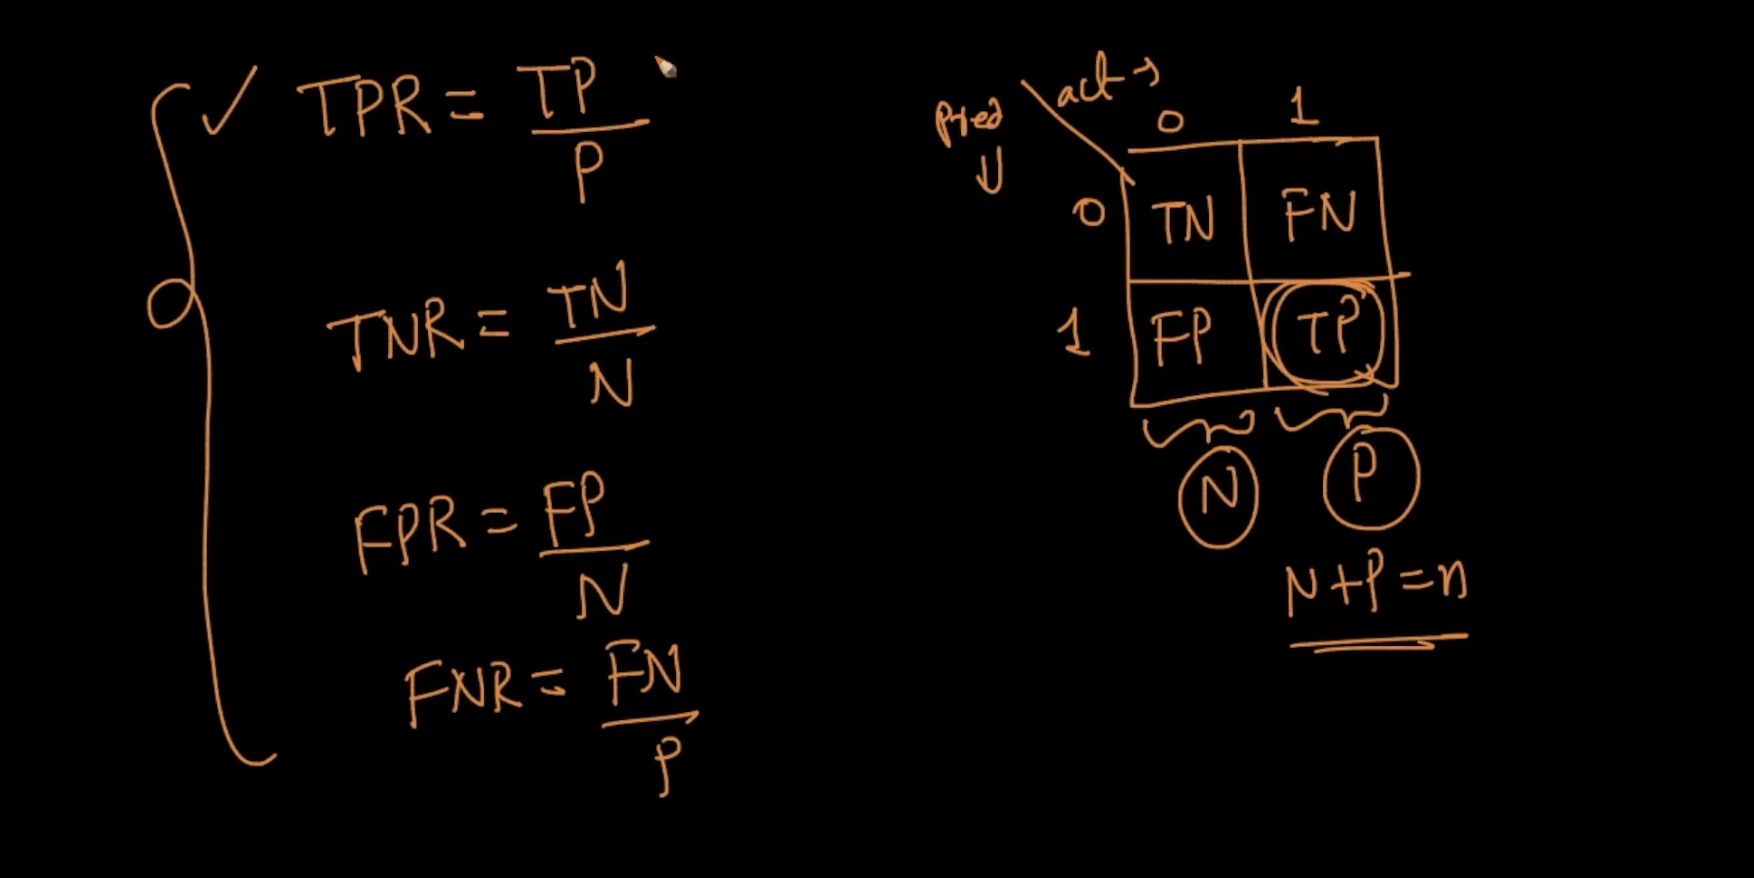 ✓ TPR = TP
P
TNR = TN
N
FPR = FP
N
FNR = FN
P
act →
pred ↓
0 1
0 TN FN
1 FP TP
N P
N+P=n